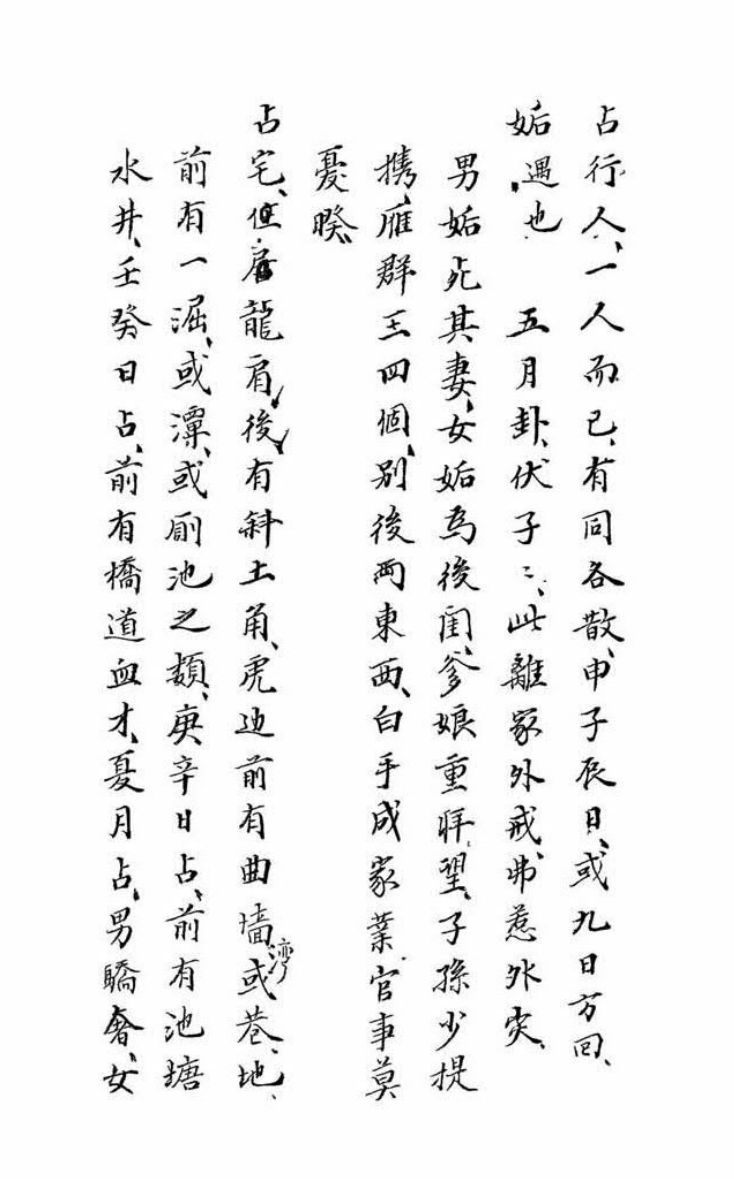 占行人、一人而已、有同各散、申子辰日、或九日方回、
姤、遇也、 五月卦、伏子水、此離家外戒、弗惹外灾、
男姤死其妻、女姤為後閨、爹娘重拜望、子孫少提
携、雁群三四個、別後両東西、白手成家業、官事莫
憂暌、
占宅、住居龍肩、後、有斜土角、虎边前有曲墻湾或巷、地、
前有一淈、或潭、或厠池之類、庚辛日占、前有池塘
水井、壬癸日占、前有橋道血才、夏月占、男驕奢、女